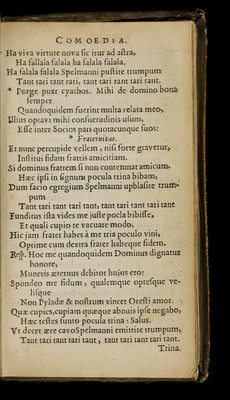 COMOEDIA.
Ha viva virtute nova sic itur ad astra,
Ha fallala falala ha falala falala.
Ha falala falala Spelmanni pustite trumpum
Tant tari tant tari, tant tari tant tari tant.
* Porge puer cyathos. Mihi de domino bona
semper
Quandoquidem fuerint multa relata meo,
Illius optavi mihi consuetudinis usum,
Esse inter Socios pars quotacunque suos:
* Fraternitas.
Et nunc percupide vellem, nisi forte gravetur,
Institui fidam fratris amicitiam.
Si dominus fratrem si non contemnat amicum.
Hæc ipsi in signum pocula trina bibam,
Dum facio egregium Spelmanni upblasite trum-
pum
Tant tari tant tari tant, tant tari tant tari tant
Funditus ista vides me juste pocla bibisse,
Et quali cupio te vacuare modo.
Hic jam frater habes à me tria poculo vini,
Optime cum dextra frater habeque fidem.
Resp. Hoc me quandoquidem Dominus dignatur
honore,
Muneris æternus debitor hujus ero:
Spondeo me fidum, qualemque optesque ve-
lisque
Non Pyladæ & nostrum vincet Oresti amor.
Quæ cupies, cupiam quæque abnuis ipse negabo,
Hæc testes sunto pocula trina: Salus.
Vt decet ære cavo Spelmanni emittite trumpum,
Tant tari tant tari tant, tant tari tant tari tant.
Trina